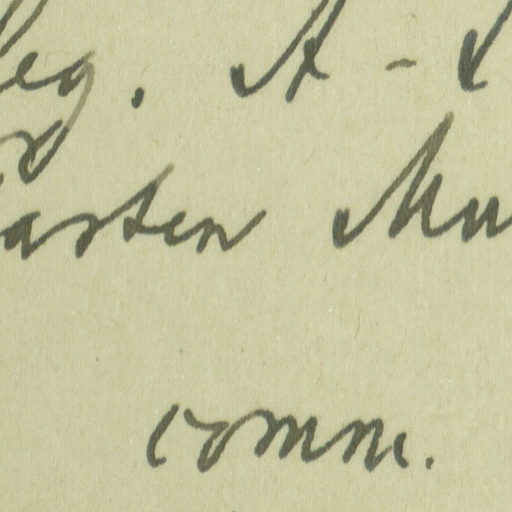 leg. A -
arsten Mu
comm.